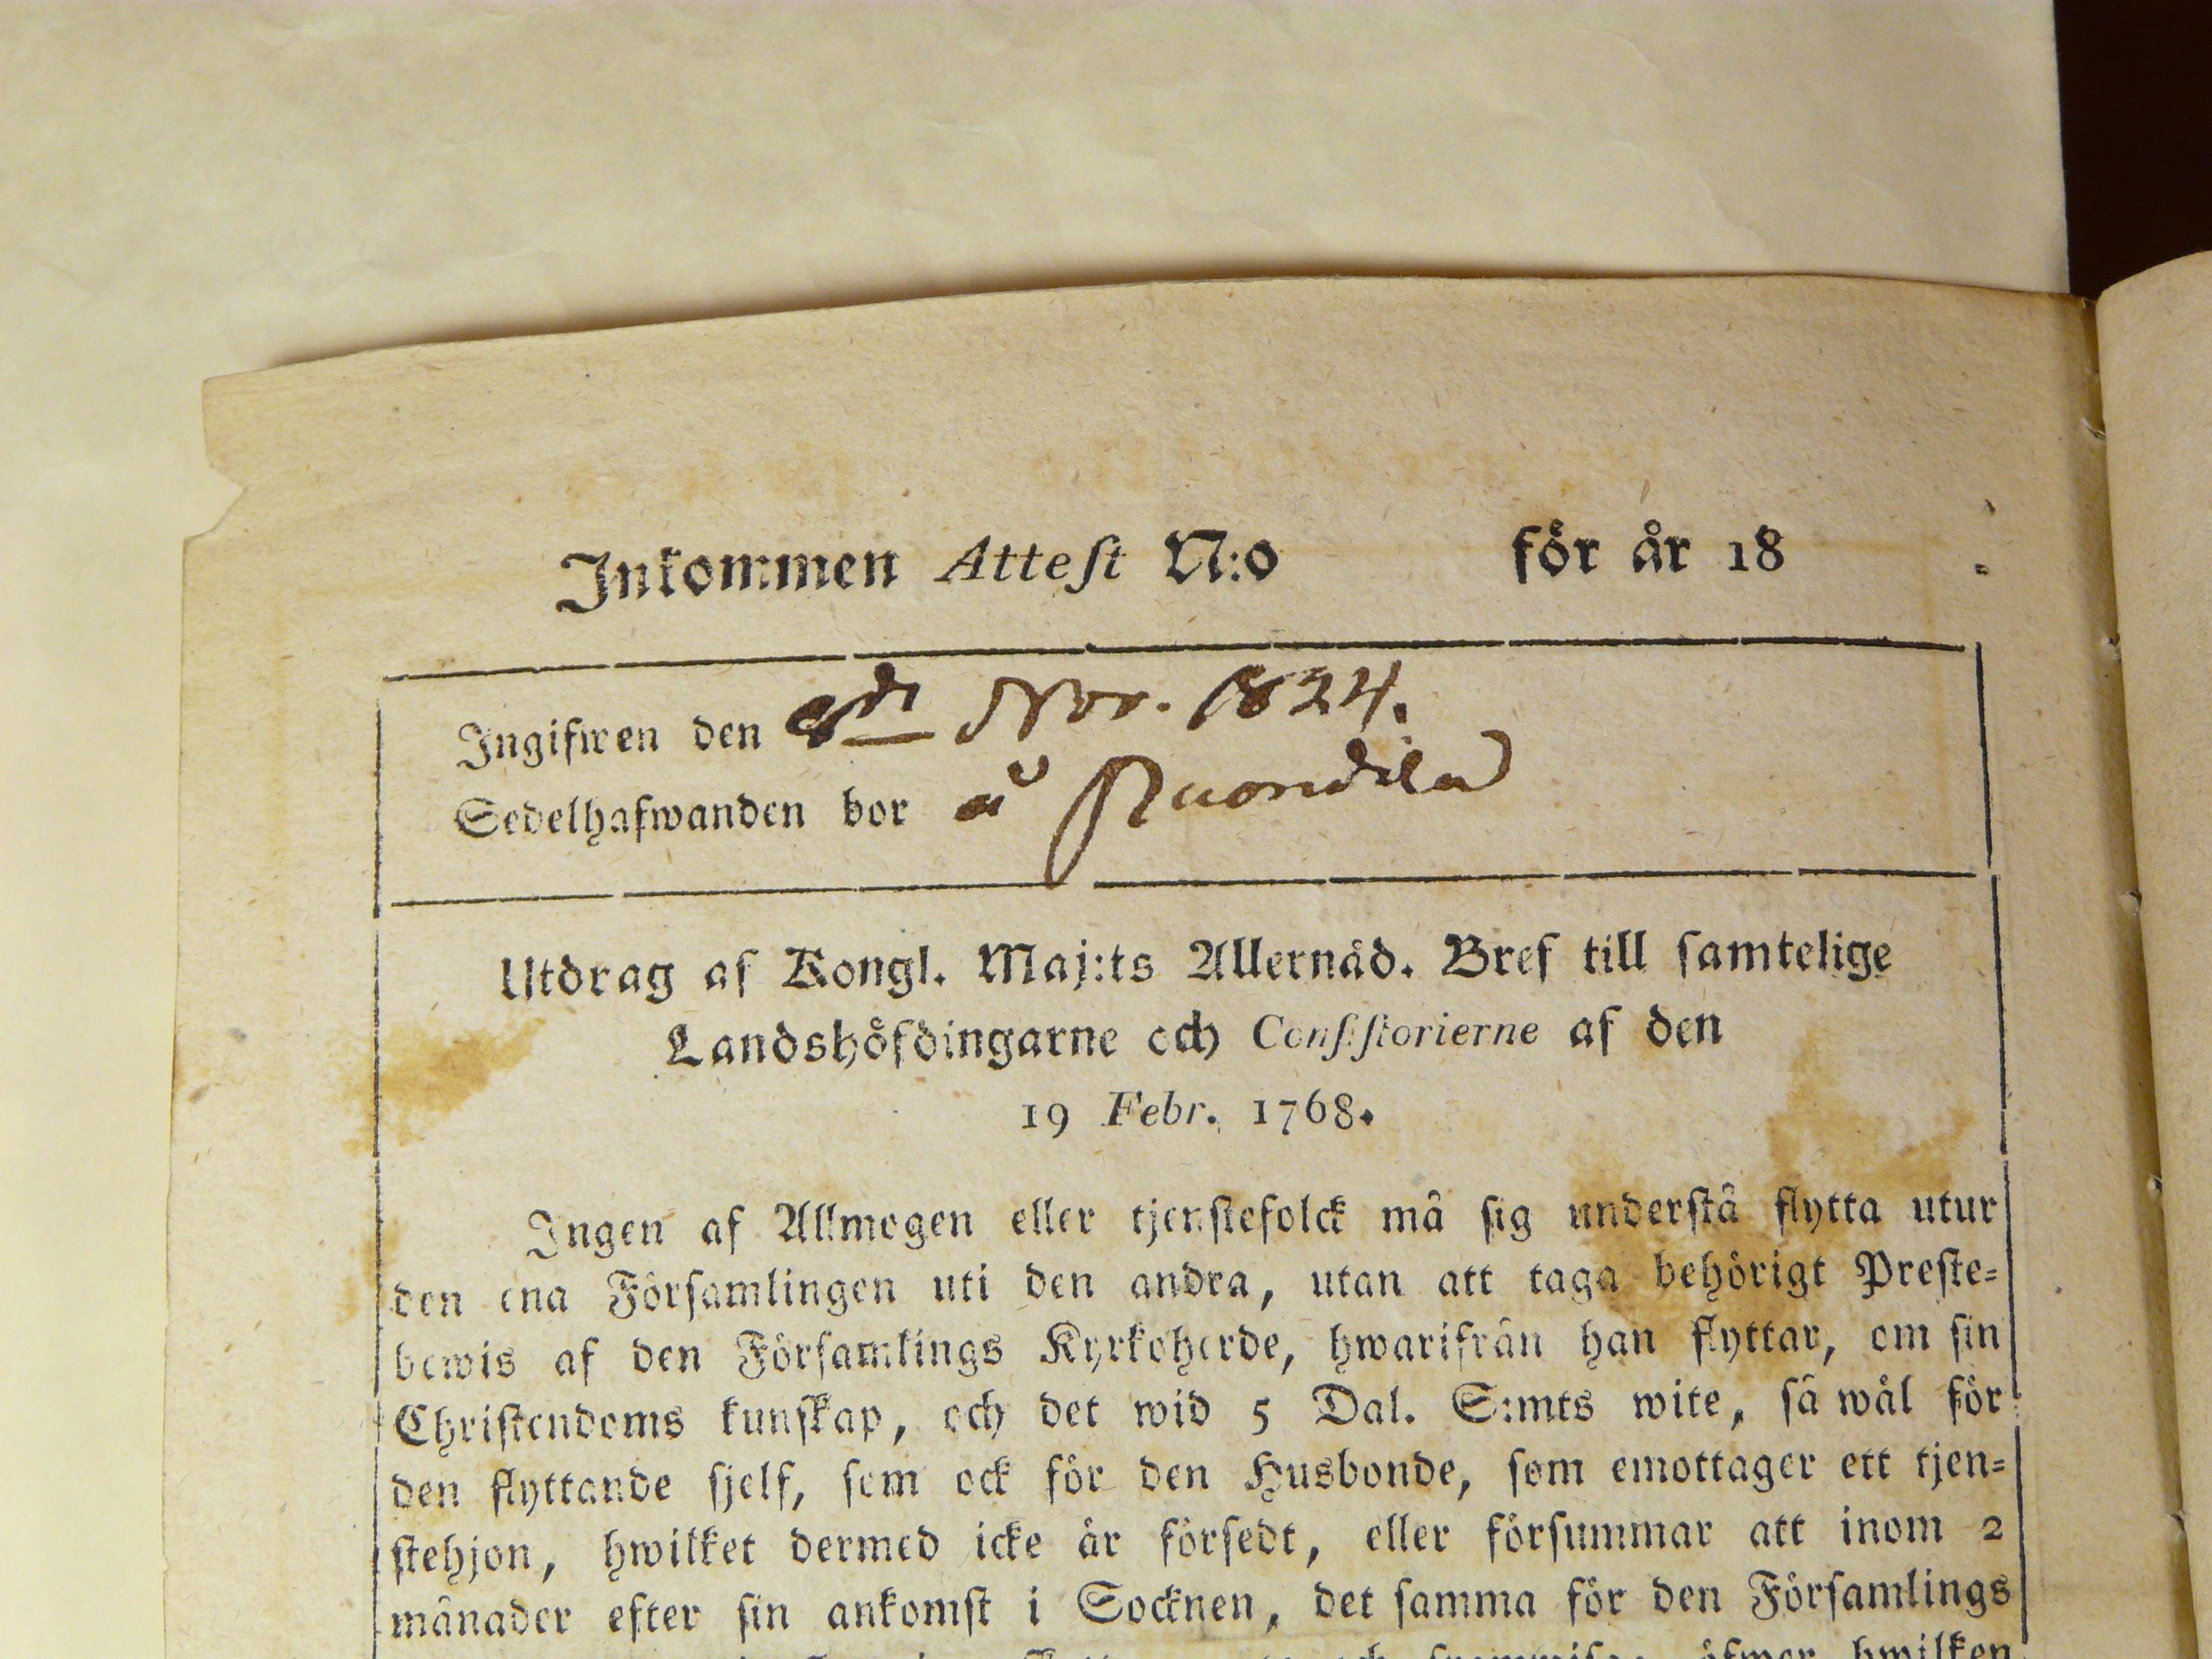 Inkommen Attest N:o för år 18 .
Ingifwen den 8de Nov. 1824.
Sedelhafwanden bor å
Utdrag af Kongl. Maj:ts Allernåd. Bref till samtelige
Landshöfdingarne och Consistorierne af den
19 Febr. 1768.
Ingen af Allmogen eller tjenstefolck må sig understå flytta utur
den ena Församlingen uti den andra, utan att taga behörigt Preste-
bewis af den Församlings Kyrkoherde, hwarifrån han flyttar, om sin
Christendoms kunskap, och det wid 5 Dal. S:mts wite, så wäl för
den flyttande sjelf, som ock för den Husbonde, som emottager ett tjen-
stehjon, hwilket dermed icke är försedt, eller försummar att inom 2
månader efter sin ankomst i Socknen, det samma för den Församlings
öfwer hwilken